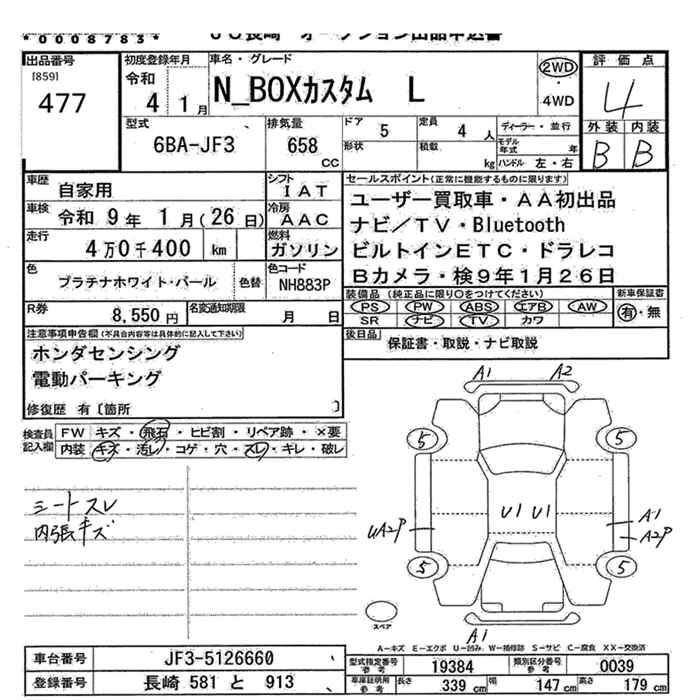 *0008783*
出品番号
[859]
477
初度登録年月
令和
4 1月
車名・グレード
N_BOXカスタム L
2WD
・
4WD
評価点
4
外装 内装
B B
型式
6BA-JF3
排気量
658
CC
ドア 5
定員 4 人
形状
積載 kg
ディーラー・並行
モデル年式 年
ハンドル 左・右
車歴
自家用
シフト
IAT
車検
令和 9年 1月(26日)
冷房
AAC
走行
4万0千400 km
燃料
ガソリン
色
プラチナホワイト・パール
色替
色コード
NH883P
R券
8,550円
名変通知期限
月 日
セールスポイント(正常に機能するものに限ります)
ユーザー買取車・AA初出品
ナビ/TV・Bluetooth
ビルトインETC・ドラレコ
Bカメラ・検9年1月26日
装備品(純正品に限り○をつけてください)
PS PW ABS エアB AW
SR ナビ TV カワ
新車保証書
有・無
後日品
保証書・取説・ナビ取説
注意事項申告欄(不具合内容等は具体的に記入して下さい)
ホンダセンシング
電動パーキング
修復歴 有〔箇所 〕
検査員
記入欄
FW キズ・飛石・ヒビ割・リペア跡・×要
内装 キズ・汚レ・コゲ・穴・スレ・キレ・破レ
シートスレ
内張キズ
A1 A2
5 5
U1 U1
UA2P
A1
A2P
5 5
A1
スペア
A-キズ E-エクボ U-凹み W-補修跡 S-サビ C-腐食 XX-交換済
車台番号
JF3-5126660
登録番号
長崎 581 と 913
型式指定番号
参考
19384
類別区分番号
参考
0039
車庫証明用
参考
長さ 339 cm
幅 147 cm
高さ 179 cm